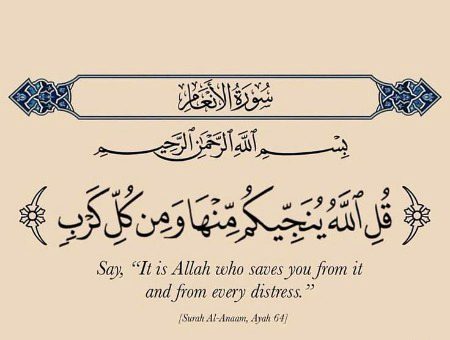 سُورَةُ الأَنْعَامِ
بِسْمِ اللَّهِ الرَّحْمَٰنِ الرَّحِيمِ
قُلِ ٱللَّهُ يُنَجِّيكُم مِّنْهَا وَمِن كُلِّ كَرْبٍ
Say, “It is Allah who saves you from it
and from every distress.”
[Surah Al-Anaam, Ayah 64]